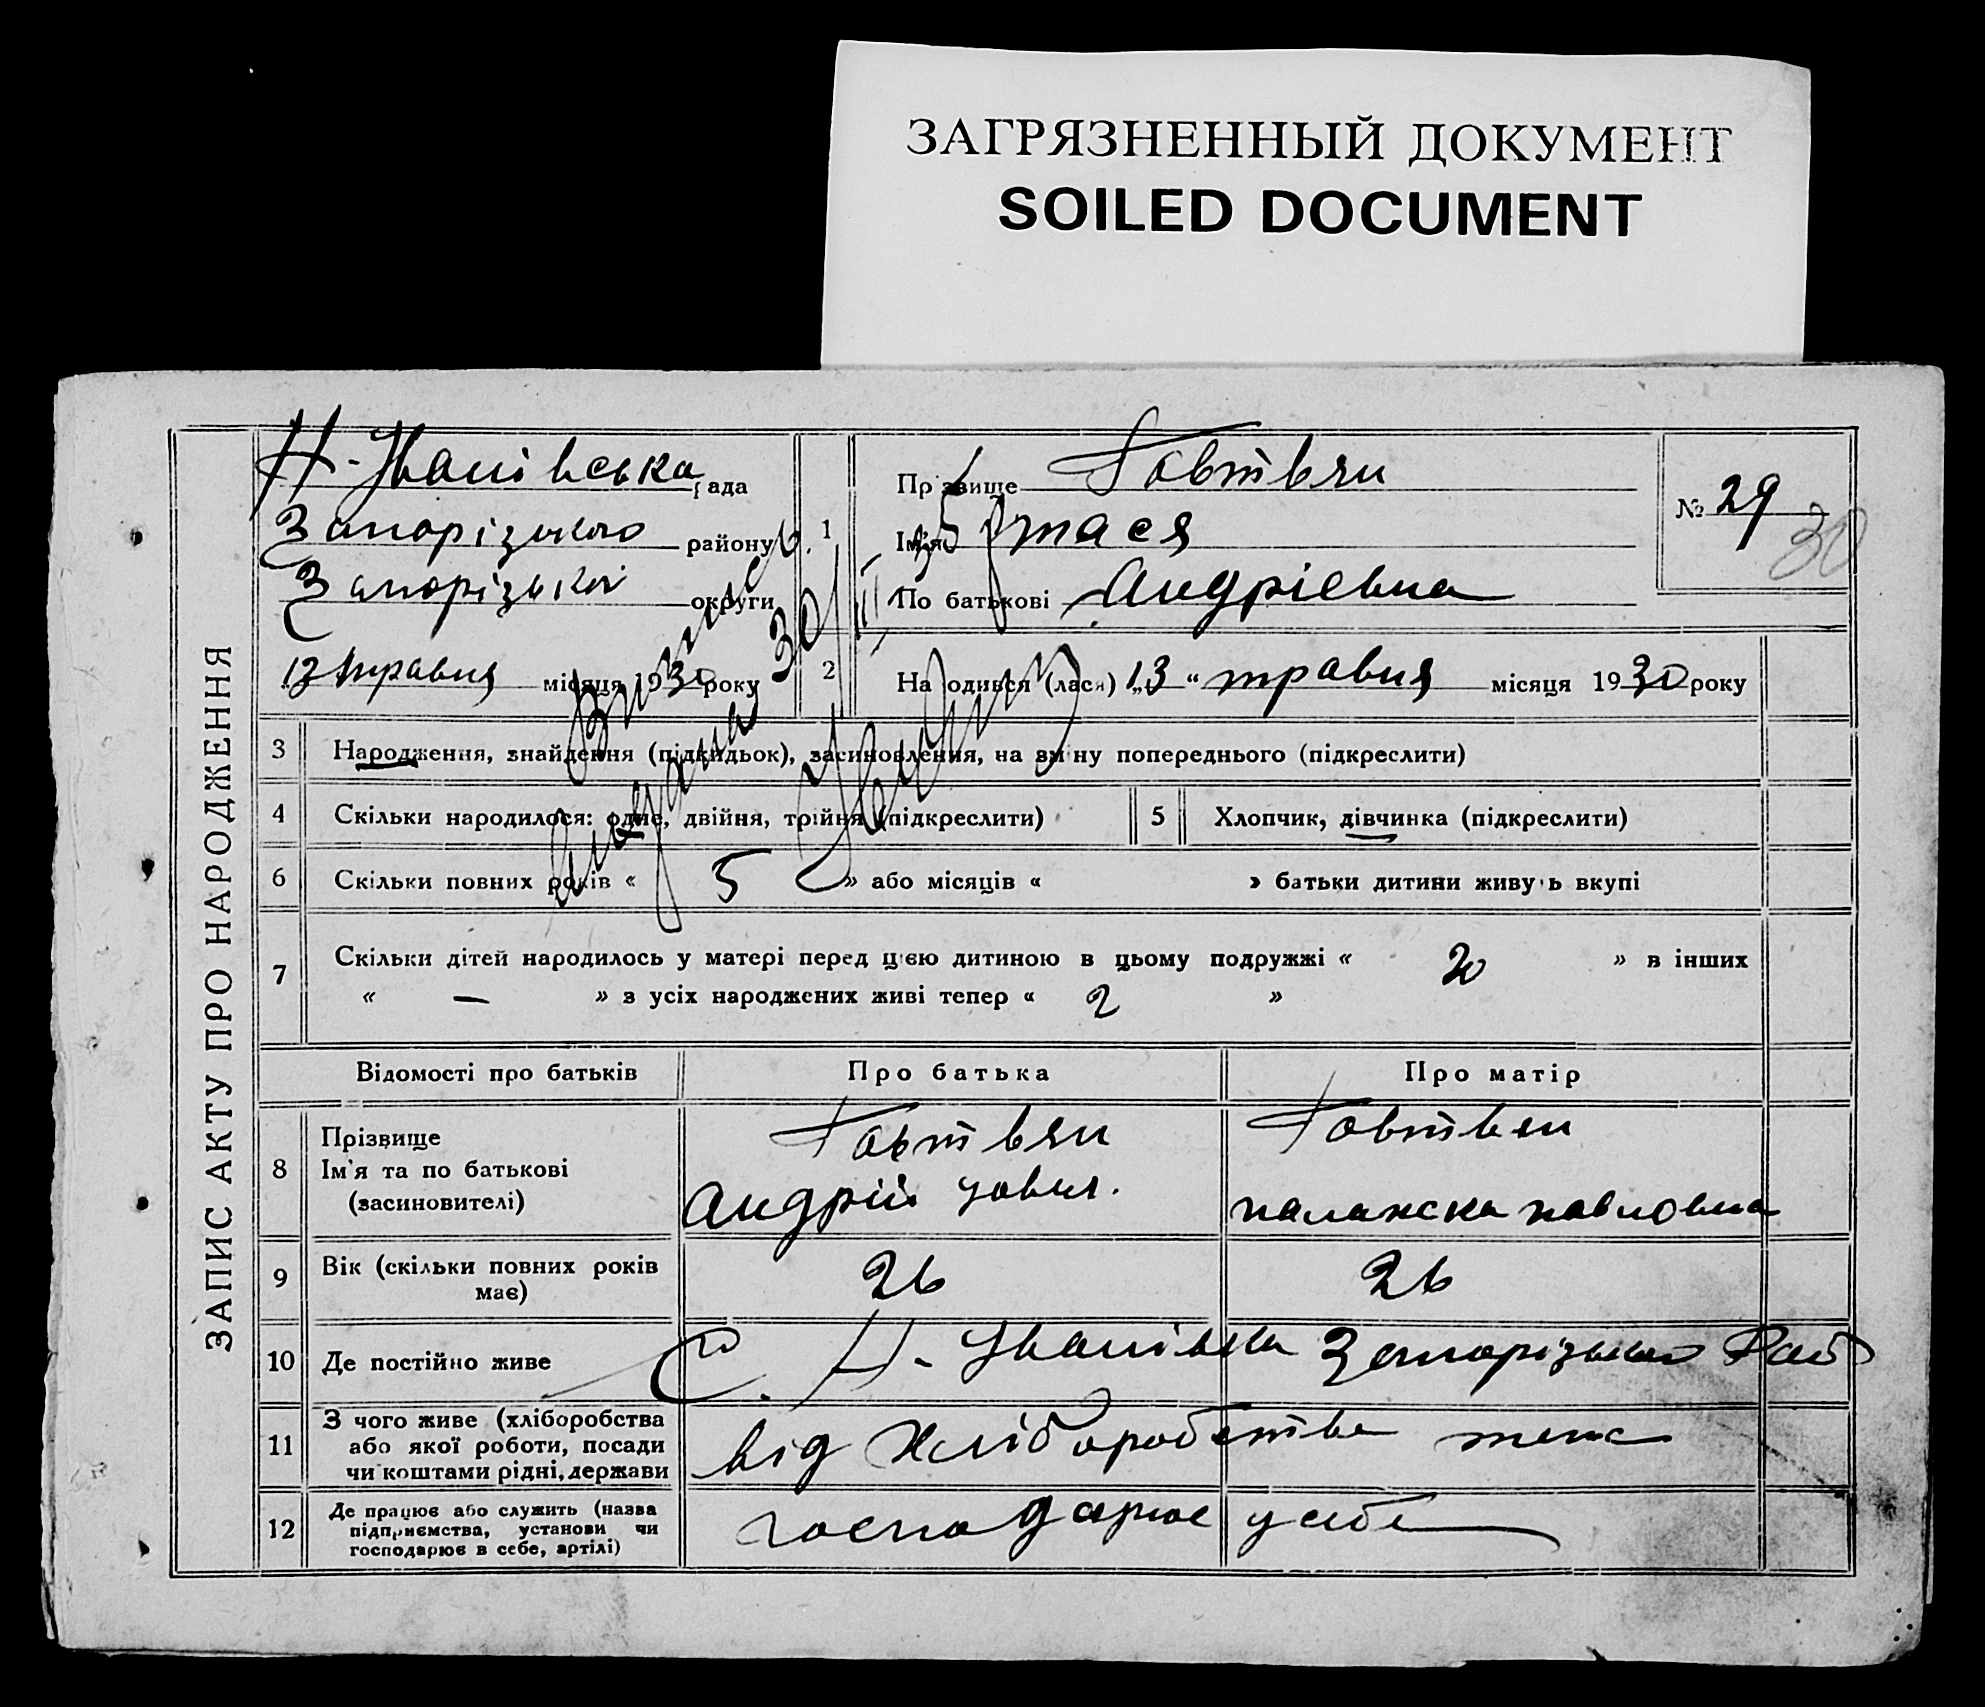 ЗАГРЯЗНЕННЫЙ ДОКУМЕНТ
SOILED DOCUMENT
ЗАПИС АКТУ ПРО НАРОДЖЕННЯ
Н-Іванівська рада
Запорізького району
Запорізької округи
13 травня місяця 1930 року
1
Прізвище Говтвян
Ім'я Тася
По батькові Андріевна
№ 29
30
2
Народився (лася) „13“ травня місяця 1930 року
3 Народження, знайдення (підкидьок), засиновлення, на зміну попереднього (підкреслити)
4 Скільки народилося: одне, двійня, трійня (підкреслити)
5 Хлопчик, дівчинка (підкреслити)
6 Скільки повних років « 5 » або місяців « » батьки дитини живуть вкупі
7 Скільки дітей народилось у матері перед цією дитиною в цьому подружжі « 2 » в інших
« — » з усіх народжених живі тепер « 2 »
Відомості про батьків Про батька Про матір
8 Прізвище
Ім'я та по батькові
(засиновителі)
Говтвян
Андрій
Говтвян
палажска павловна
9 Вік (скільки повних років
має)
26
26
10 Де постійно живе
С. Н-Іванівка Запорізького Рай
11 З чого живе (хліборобства
або якої роботи, посади
чи коштами рідні, держави
від хліборобства теж
12 Де працює або служить (назва
підприємства, установи чи
господарює в себе, артілі)
господарює у себе